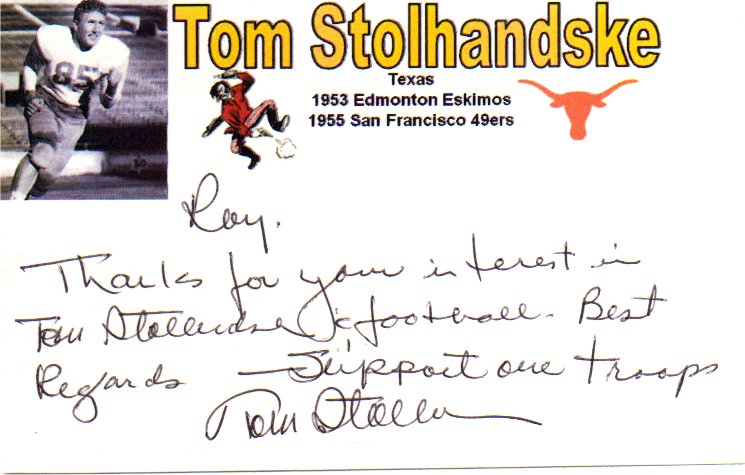 85
Tom Stolhandske
Texas
1953 Edmonton Eskimos
1955 San Francisco 49ers
Roy,
Thanks for your interest in
Tom Stolhandske & football. Best
Regards — Support our troops
Tom